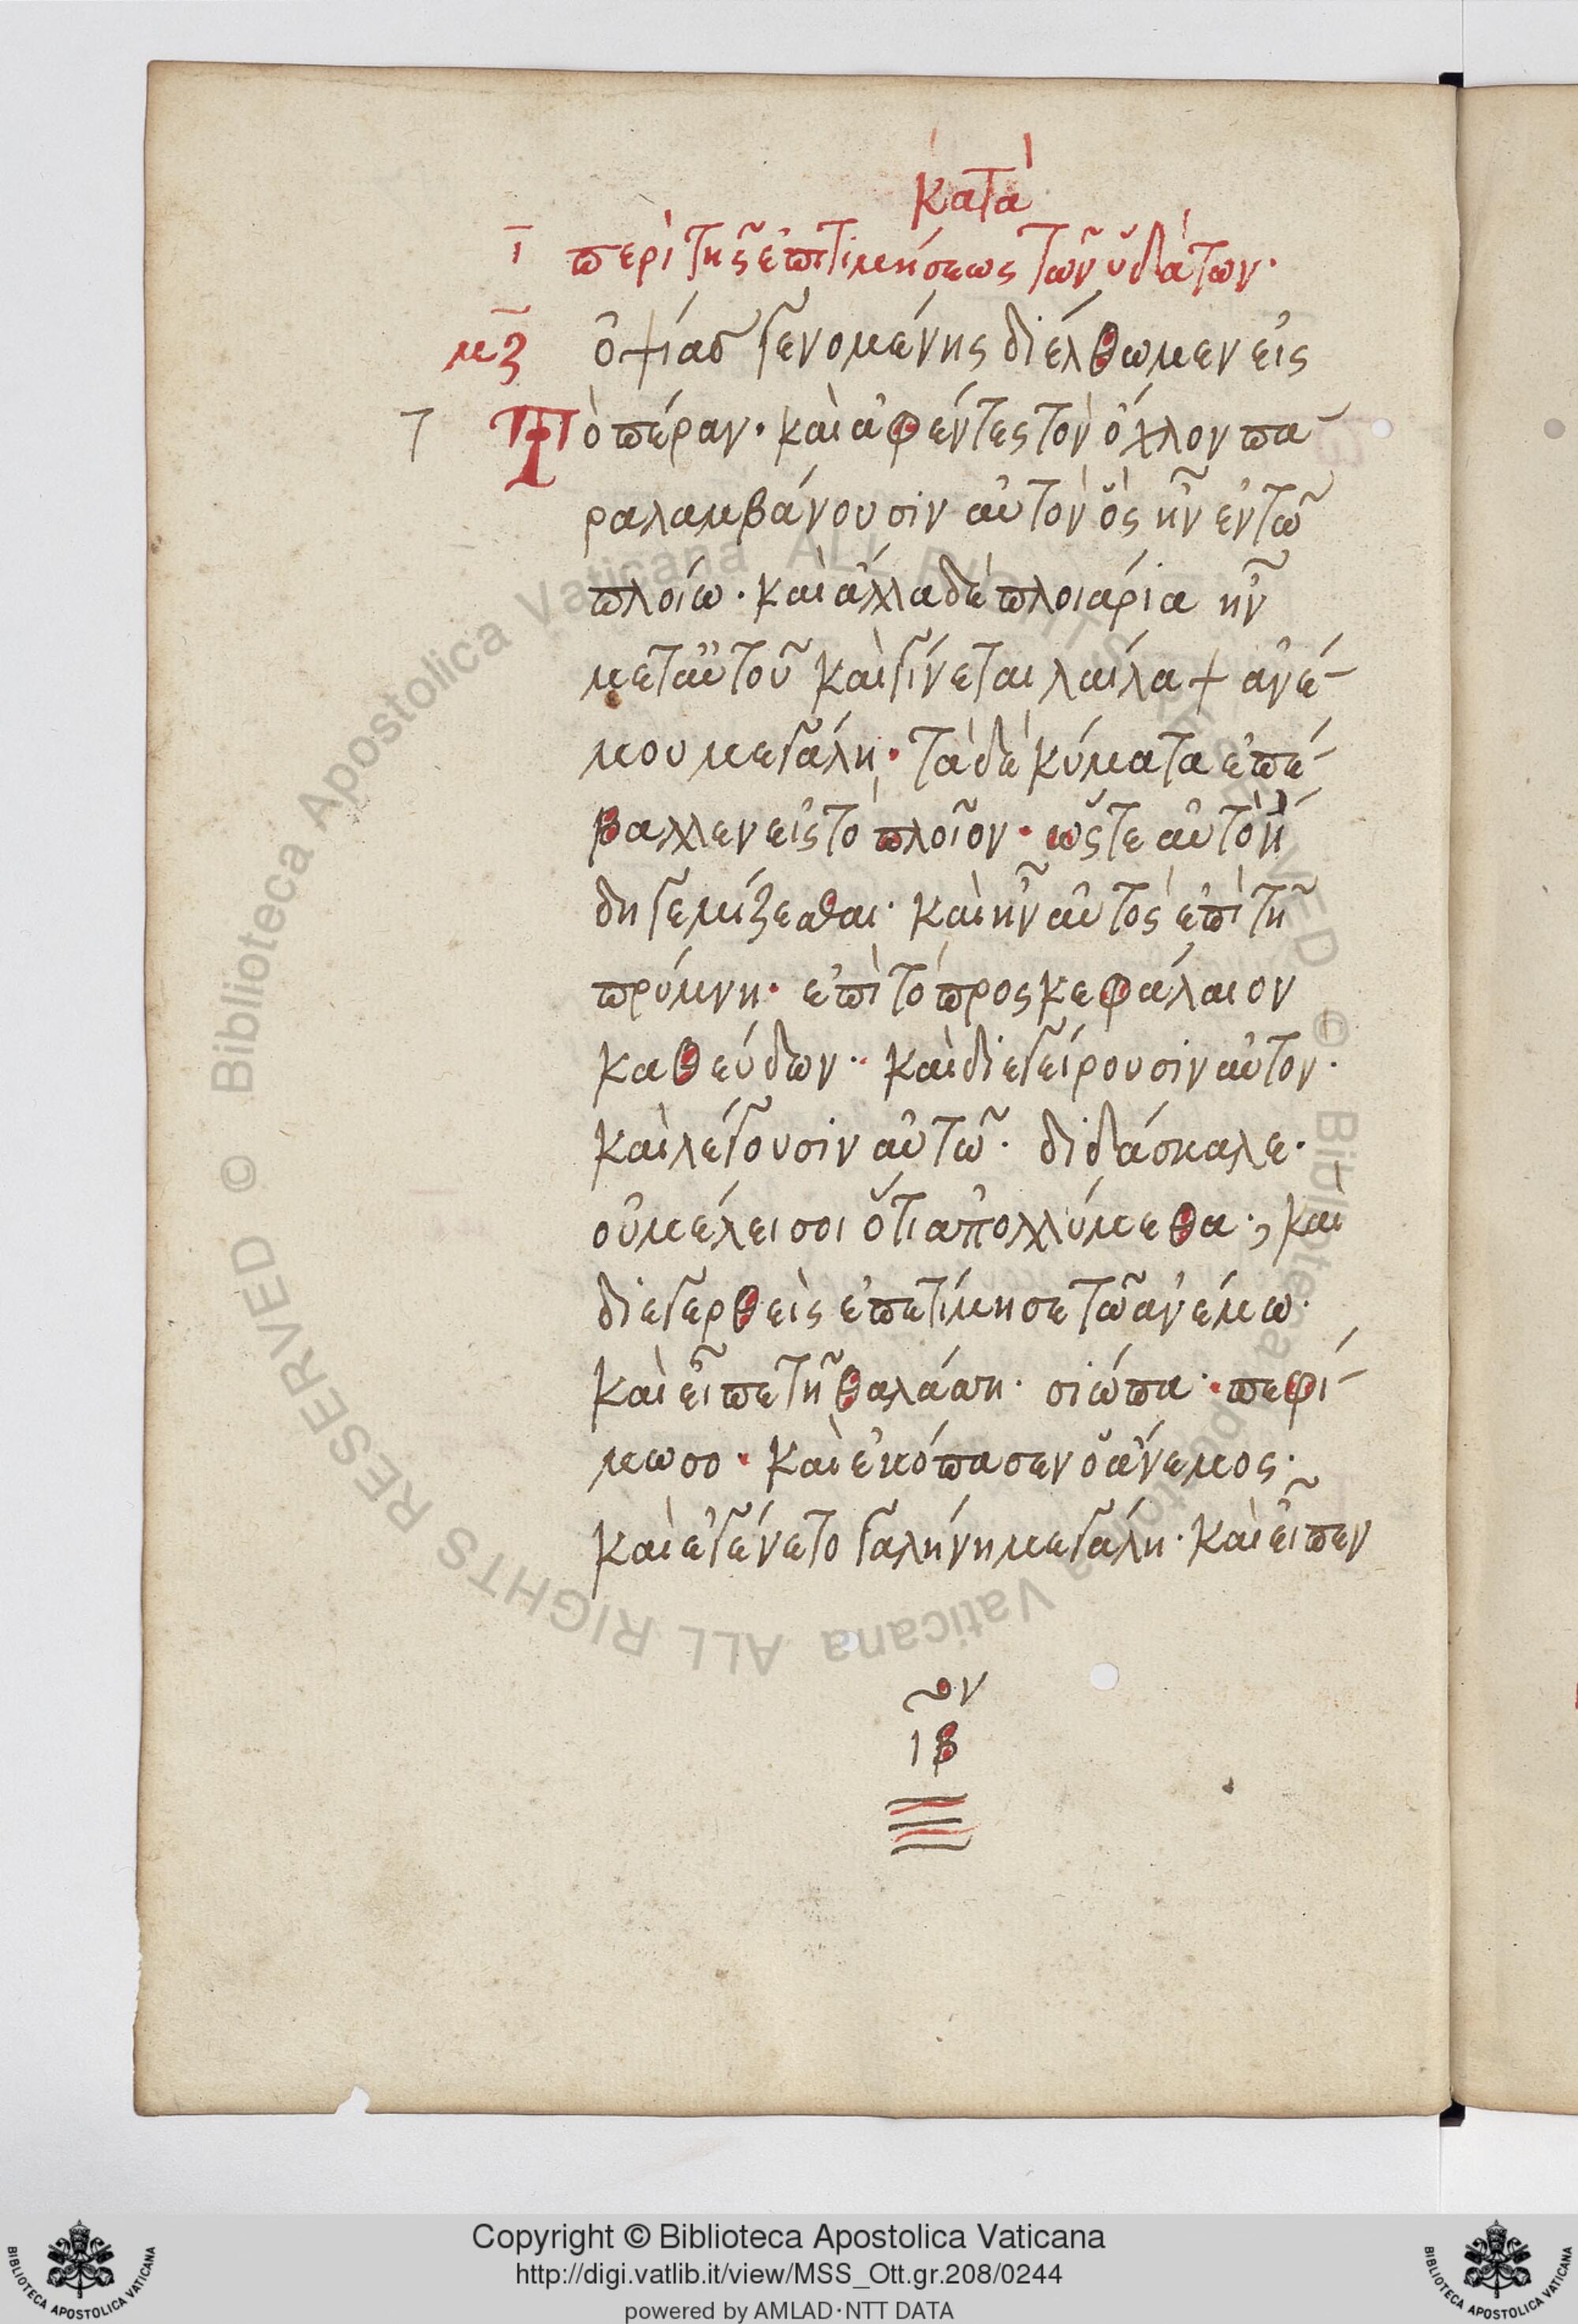 κατὰ
ι περὶ τῆς ἐπιτιμήσεως τῶν ὑδάτων·
μζ ὀψίασ γενομένης διέλθωμεν εἰς
τὸ πέραν· καὶ ἀφέντες τὸν ὄχλον πα
ραλαμβάνουσιν αὐτὸν ὃς ἦν ἐν τῶ
πλοίω· καὶ ἄλλα δὲ πλοιάρια ἦν
μετ αὐτοῦ καὶ γίνεται λαίλαψ ἀνέ
μου μεγάλη· τὰ δὲ κύματα ἐπέ
βαλλεν εἰς τὸ πλοῖον· ὥστε αὐτὸ ἤ
δη γεμίζεσθαι· καὶ ἦν αὐτὸς ἐπὶ τῆ
πρύμνη· ἐπὶ τὸ προςκεφάλαιον
καθεύδων· καὶ διεγείρουσιν αὐτον·
καὶ λέγουσιν αὐτῶ· διδάσκαλε·
οὐ μέλει σοι ὅτι ἀπολλύμεθα·, καὶ
διεγερθεὶς ἐπετίμησε τῶ ἀνέμω·
καὶ εἶπε τῆ θαλάσση· σιώπα· πεφί
μωσο· καὶ ἐκόπασεν ὁ ἄνεμος·
καὶ ἐγένετο γαλήνη μεγάλη· καὶ εἶπεν
ιβ
Copyright © Biblioteca Apostolica Vaticana
http://digi.vatlib.it/view/MSS_Ott.gr.208/0244
powered by AMLAD·NTT DATA